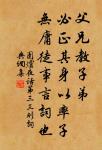 父兄教子弟
必正其身以率子
無庸徒事言詞也
圍爐夜話第三三則詞
典網集